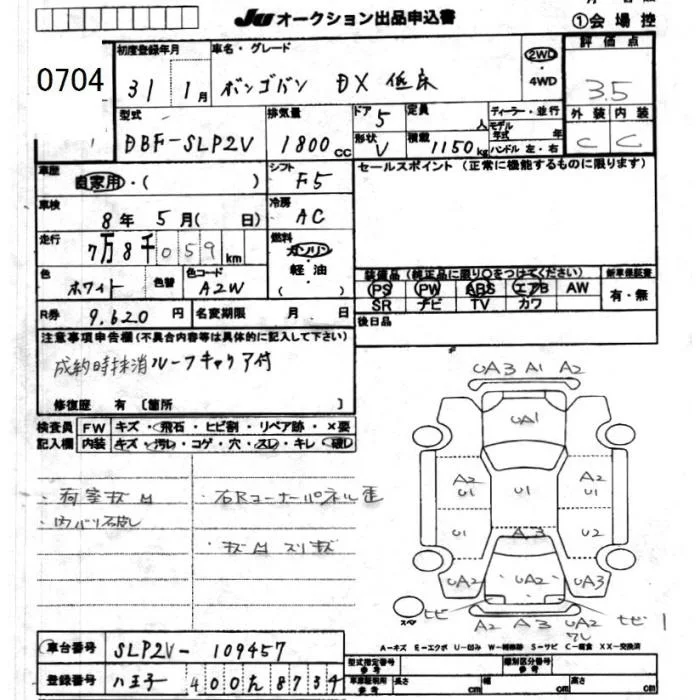 JU オークション出品申込書
①会場控
0704
初度登録年月
車名・グレード
31 1月
ボンゴバン DX 低床
2WD
・
4WD
評価点
3.5
外装 内装
C C
型式
DBF-SLP2V
排気量
1800cc
ドア
5
定員
人
形状
V
積載
1150kg
ディーラー・並行
モデル年式 年
ハンドル 左・右
車歴
自家用・( )
シフト
F5
セールスポイント(正常に機能するものに限ります)
車検
8年 5月( 日)
冷房
AC
走行
7万8千059km
燃料
ガソリン
軽油
( )
色
ホワイト
色替
色コード
A2W
装備品(純正品に限り○をつけてください)
新車保証書
PS PW ABS エアB AW
有・無
SR ナビ TV カワ
R券
9,620円
名変期限 月 日
後日品
注意事項申告欄(不具合内容等は具体的に記入して下さい)
成約時抹消 ルーフキャリア付
修復歴 有〔箇所 〕
検査員 FW キズ・飛石・ヒビ割・リペア跡・×要
記入欄 内装 キズ・汚レ・コゲ・穴・スレ・キレ・破レ
・荷室キズ凹
・石Rコーナーパネル歪
・キズ凹スリキズ
UA3 A1 A2
UA1
A2
U1
U1
A2
U1
U1
A3
U2
UA2
UA2
UA3
スペ
ヒビ
A2 A3 UA2
ワレ
ヒビ1
A-キズ E-エクボ U-凹み W-補修跡 S-サビ C-腐食 XX-交換済
車台番号
SLP2V-109457
登録番号
八王子 400 た 8734
型式指定番号
参考
類別区分番号
参考
車庫証明用
参考
長さ cm
幅 cm
高さ cm